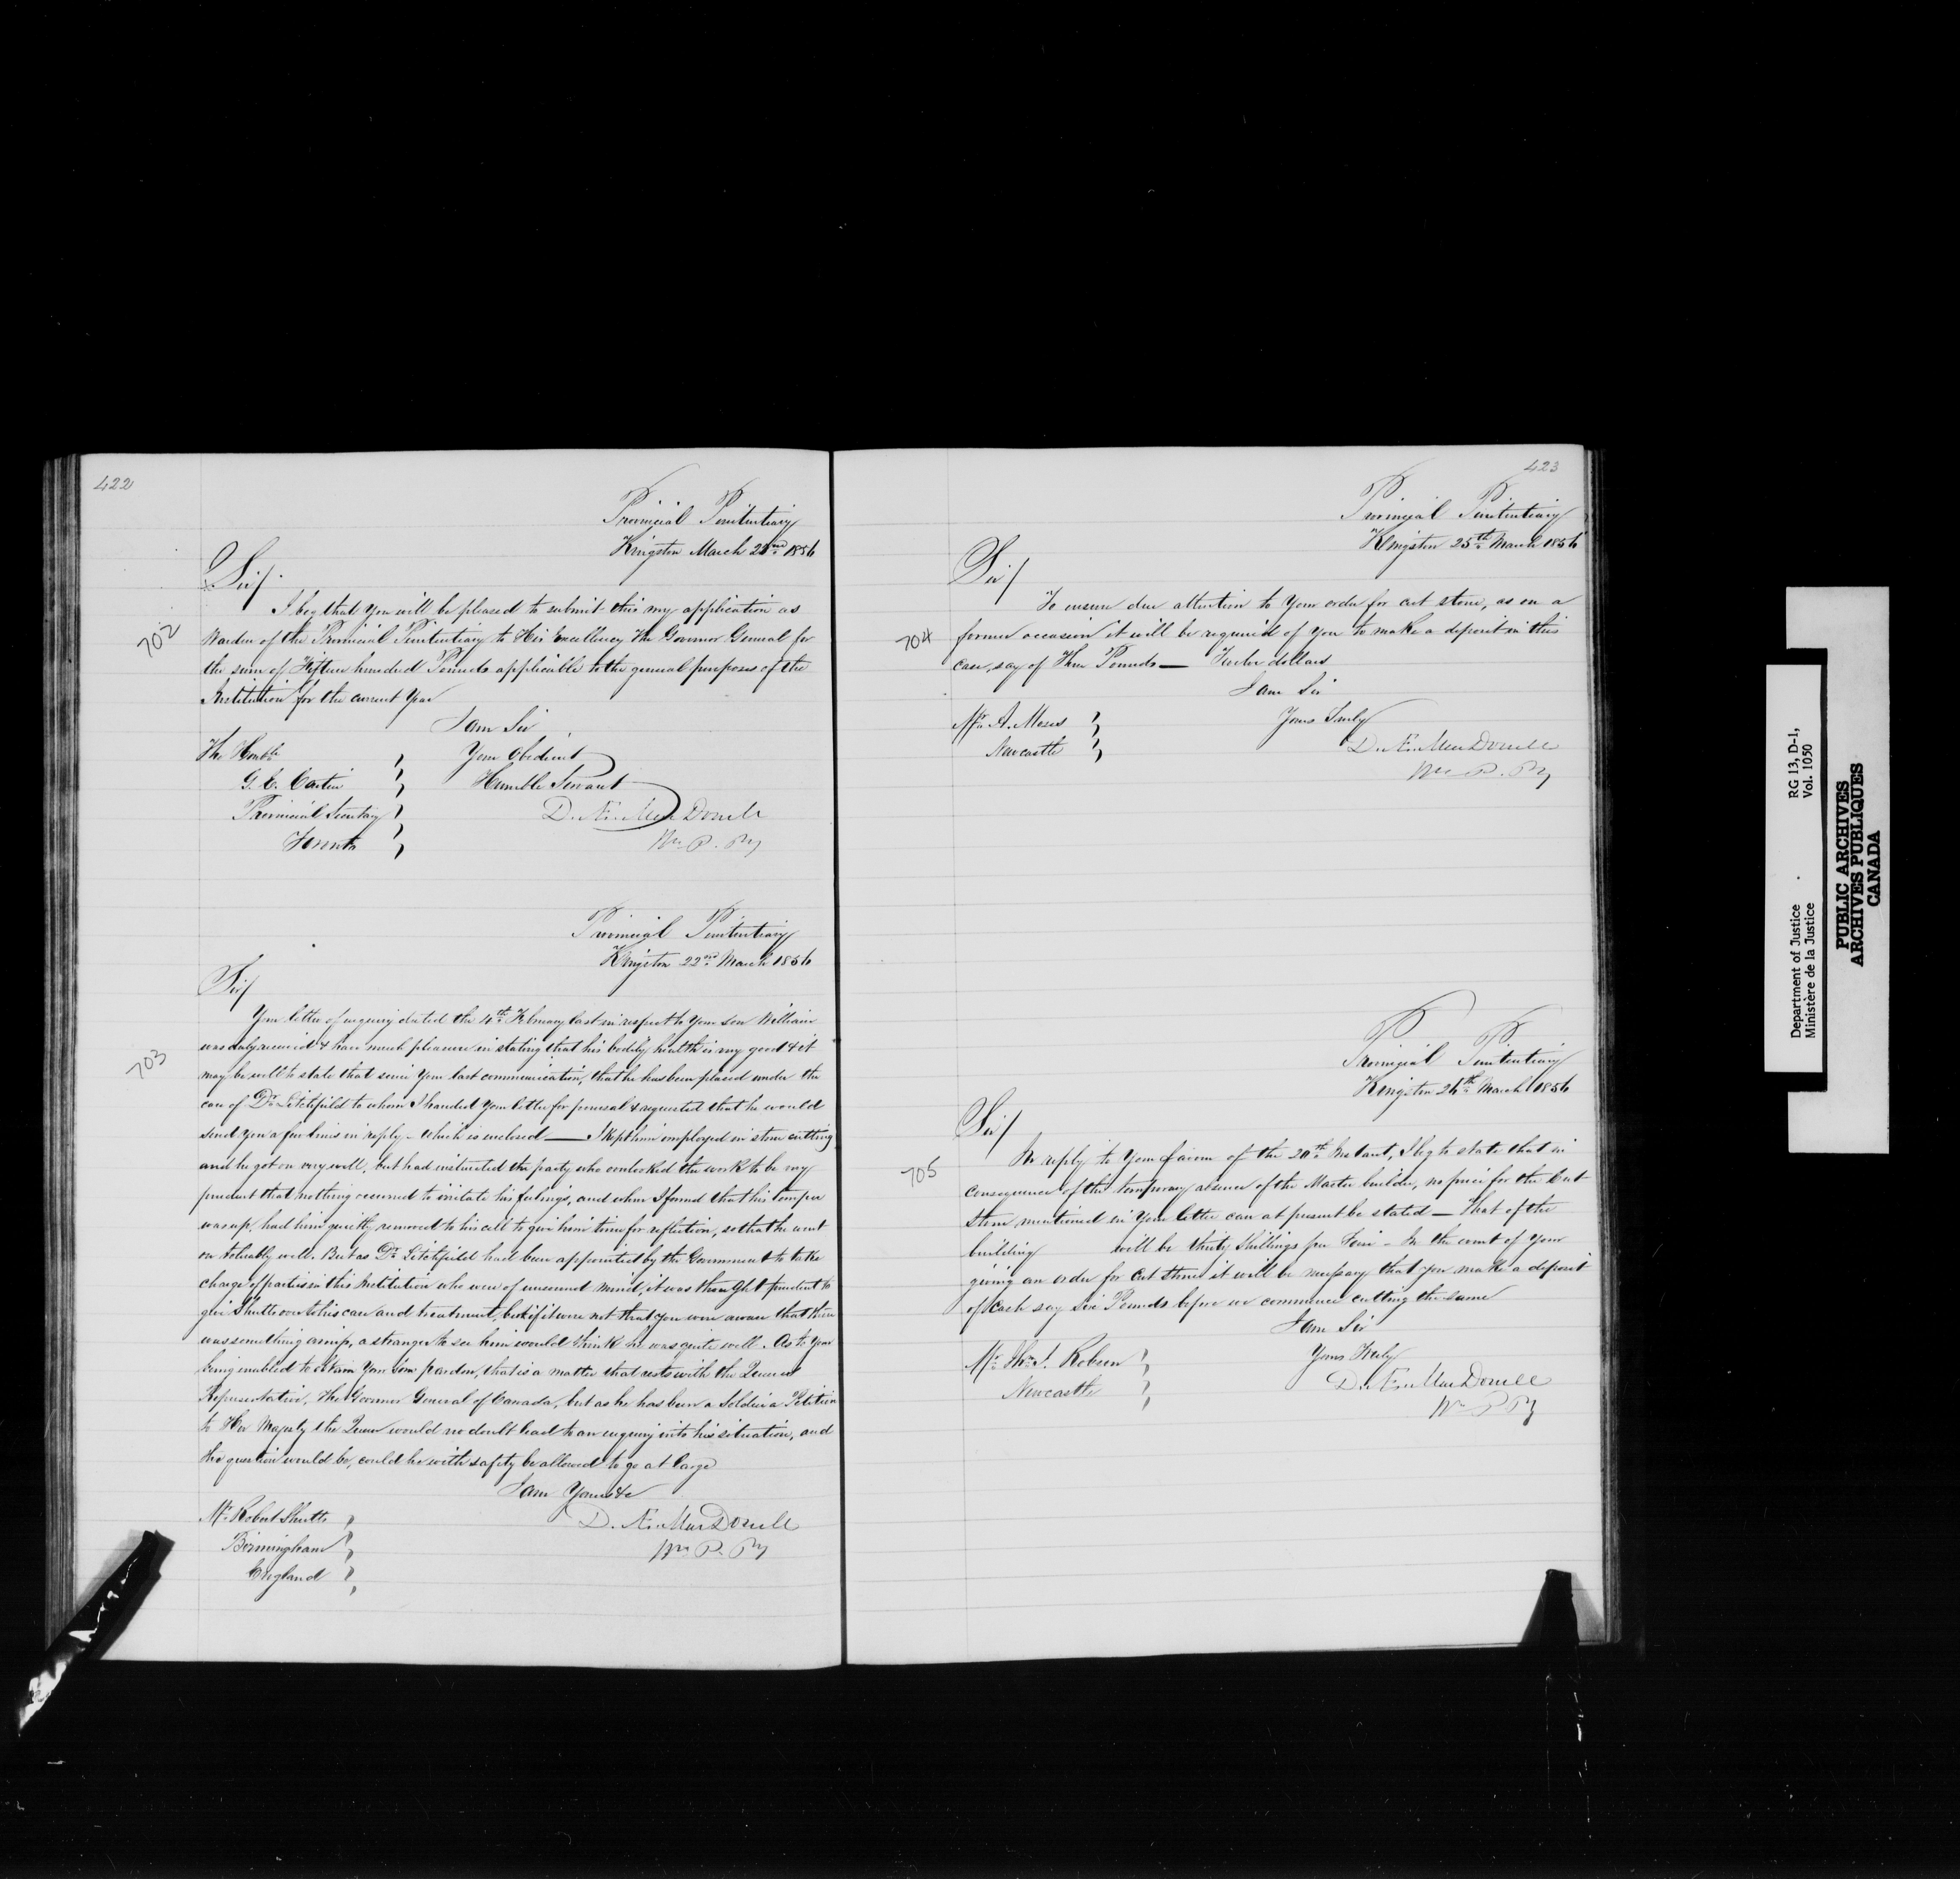 422
Provincial Penitentiary
Kingston March 22nd 1856
Sir/
702
I beg that You will be pleased to submit this my application as
Warden of the Provincial Penitentiary to His Excellency The Governor General for
the sum of Fifteen hundred Pounds applicable to the general purposes of the
Institution for the current Year
I am Sir
Your Obedient
Humble Servant
D. Æ. MacDonell
Wn P. Py
The Honble
G. E. Cartier
Provincial Secretary
Toronto
Provincial Penitentiary
Kingston 22nd March 1856
Sir/
703
Your letter of enquiry dated the 4th February last in respect to Your son William
was duly received & have much pleasure in stating that his bodily health is very good & it
may be well to state that since Your last communication, that he has been placed under the
care of Dr Litchfield to whom I handed Your letter for perusal & requested that he would
send You a few lines in reply - which is enclosed — I kept him employed in stone cutting
and he got on very well, but had instructed the party who overlooked the work to be very
prudent that nothing occurred to irritate his feelings, and when I found that his temper
was up, had him quietly removed to his cell to give him time for reflection, so that he went
on tolerably well. But as Dr Litchfield had been appointed by the Government to take
charge of parties in this Institution who were of unsound mind, it was thought prudent to
give Shutts over to his care and treatment, but if it were not that you were aware that there
was something amiss, a stranger to see him would think he was quite well. As to Your
being enabled to obtain Your sons pardon, that is a matter that rests with the Queens
Representative, The Governor General of Canada, but as he has been a Soldier a Petition
to Her Majesty the Queen would no doubt lead to an enquiry into his situation, and
the question would be, could he with safety be allowed to go at large
I am Yours &c
D. Æ. MacDonell
Wn P. Py
Mr Robert Shutts
Birmingham
England
423
Provincial Penitentiary
Kingston 25th March 1856
Sir/
704
To ensure due attention to Your order for cut stone, as on a
former occasion it will be required of You to make a deposit in this
case, say of Three Pounds — Twelve dollars
I am Sir
Yours Truly
D. Æ. MacDonell
Wn P. Py
Mr A. Moses
Newcastle
Provincial Penitentiary
Kingston 26th March 1856
Sir/
705
In reply to Your favour of the 20th Instant, I beg to state that in
consequence of the temporary absence of the Master builder, no price for the Cut
Stone mentioned in Your letter can at present be stated — That of the
building will be thirty Shillings per Toise - In the event of Your
giving an order for Cut Stone it will be necessary that you make a deposit
of Cash say Six Pounds before we commence cutting the same
I am Sir
Yours Truly
D. Æ. MacDonell
Wn P. Py
Mr Thos J. Robson
Newcastle
Department of Justice
Ministère de la Justice
RG 13, D-1,
Vol. 1050
PUBLIC ARCHIVES
ARCHIVES PUBLIQUES
CANADA